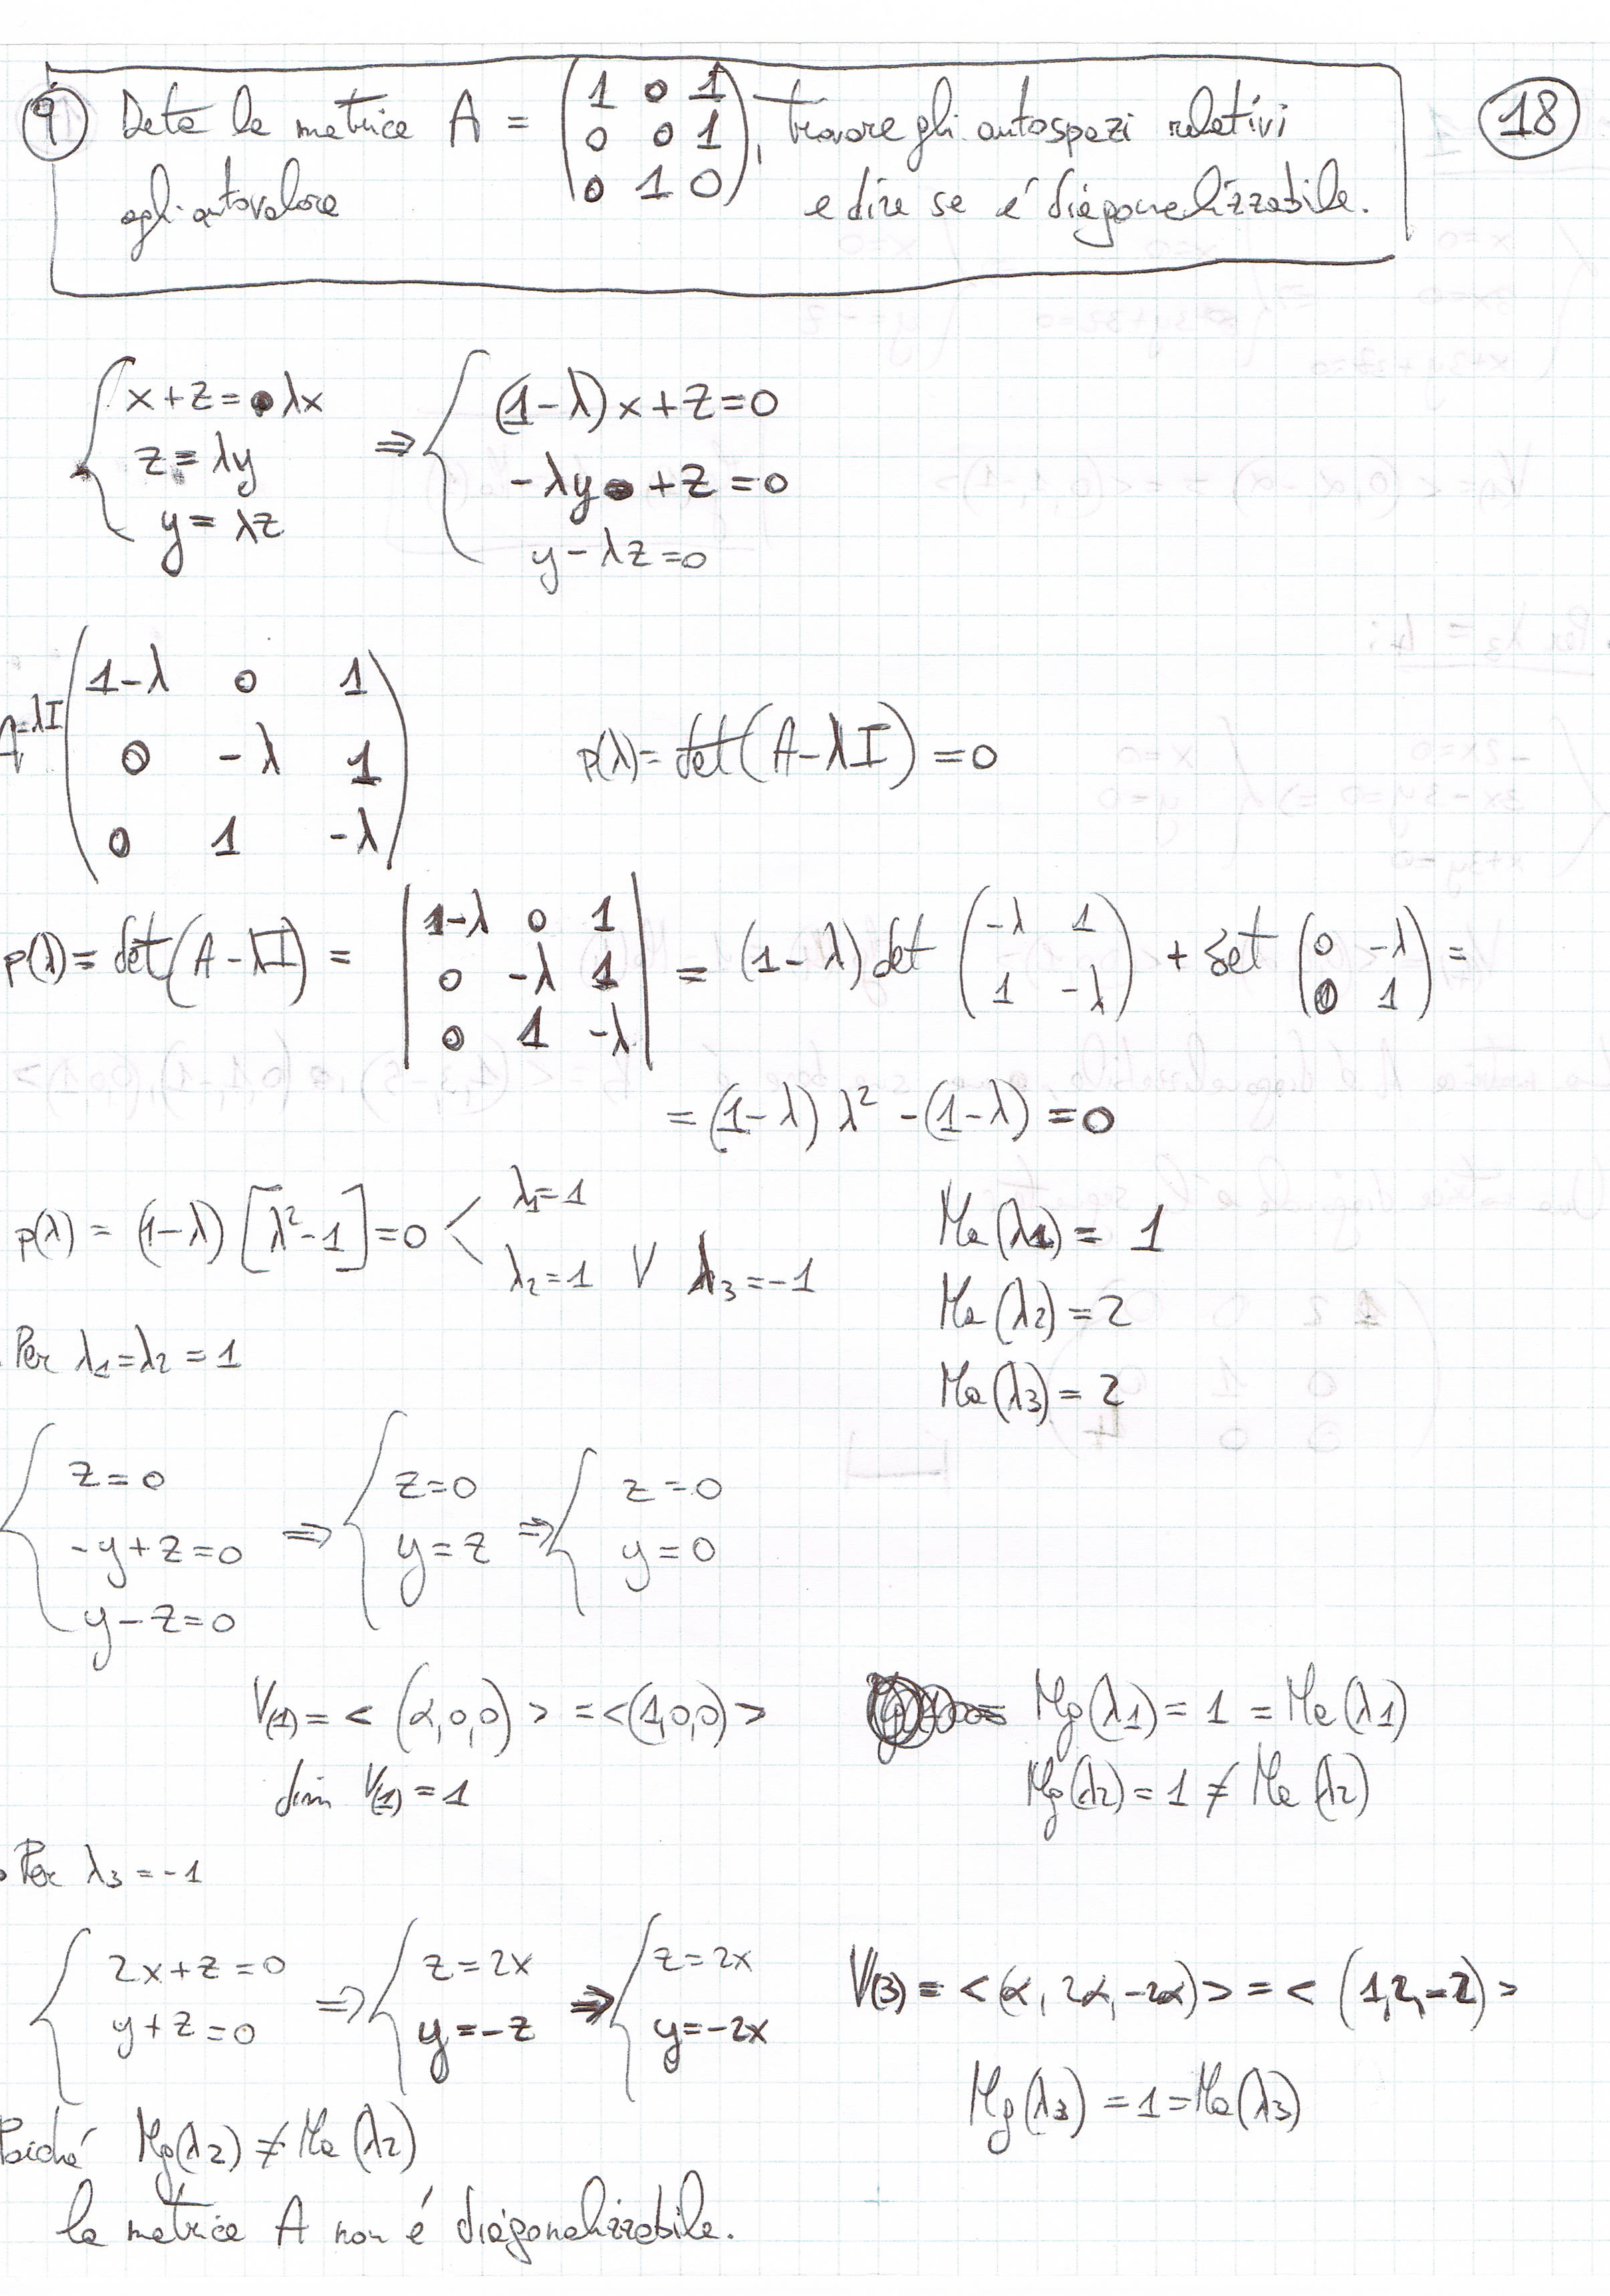 9 Data la matrice A = (1 0 1 / 0 0 1 / 0 1 0), trovare gli autospazi relativi
agli autovalore e dire se é diagonalizzabile.
18
{ x+z=λx ⇒ { (1-λ)x+z=0
z=λy -λy+z=0
y=λz y-λz=0
A-λI (1-λ 0 1
0 -λ 1 p(λ)=det(A-λI)=0
0 1 -λ)
p(λ)=det(A-λI) = |1-λ 0 1 / 0 -λ 1 / 0 1 -λ| = (1-λ)det(-λ 1 / 1 -λ) + det(0 -λ / 0 1) =
= (1-λ)λ² -(1-λ) =0
p(λ) = (1-λ)[λ²-1]=0 < λ1=1
λ2=1 V λ3=-1
Ma(λ1) = 1
Ma(λ2)=2
Ma(λ3)=2
. Per λ1=λ2=1
{ z=0 ⇒ { z=0 ⇒ { z=0
-y+z=0 y=z y=0
y-z=0
V(1)=<(α,0,0)>=<(1,0,0)> Mg(λ1)=1=Ma(λ1)
dim V(1)=1 Mg(λ2)=1≠Ma(λ2)
. Per λ3=-1
{ 2x+z=0 ⇒ { z=2x ⇒ { z=2x V(3)=<(α,2α,-2α)>=<(1,2,-2)>
y+z=0 y=-z y=-2x
Mg(λ3)=1=Ma(λ3)
Poiché Mg(λ2)≠Ma(λ2)
la matrice A non é diagonalizzabile.